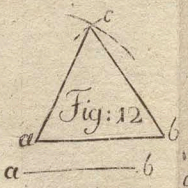 c
Fig: 12
a b
a b